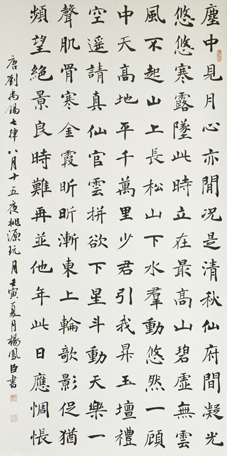 塵中見月心亦閒況是清秋仙府間凝光
悠悠寒露墜此時立在最高山碧虛無雲
風不起山上長松山下水羣動悠然一顧
中天高地平千萬里少君引我昇玉壇禮
空遥請真仙官雲軿欲下星斗動天樂一
聲肌骨寒金霞昕昕漸東上輪欹影促猶
頻望絕景良時難再並他年此日應惆悵
唐劉禹錫七律八月十五夜桃源玩月壬寅夏月楊鳳臣書